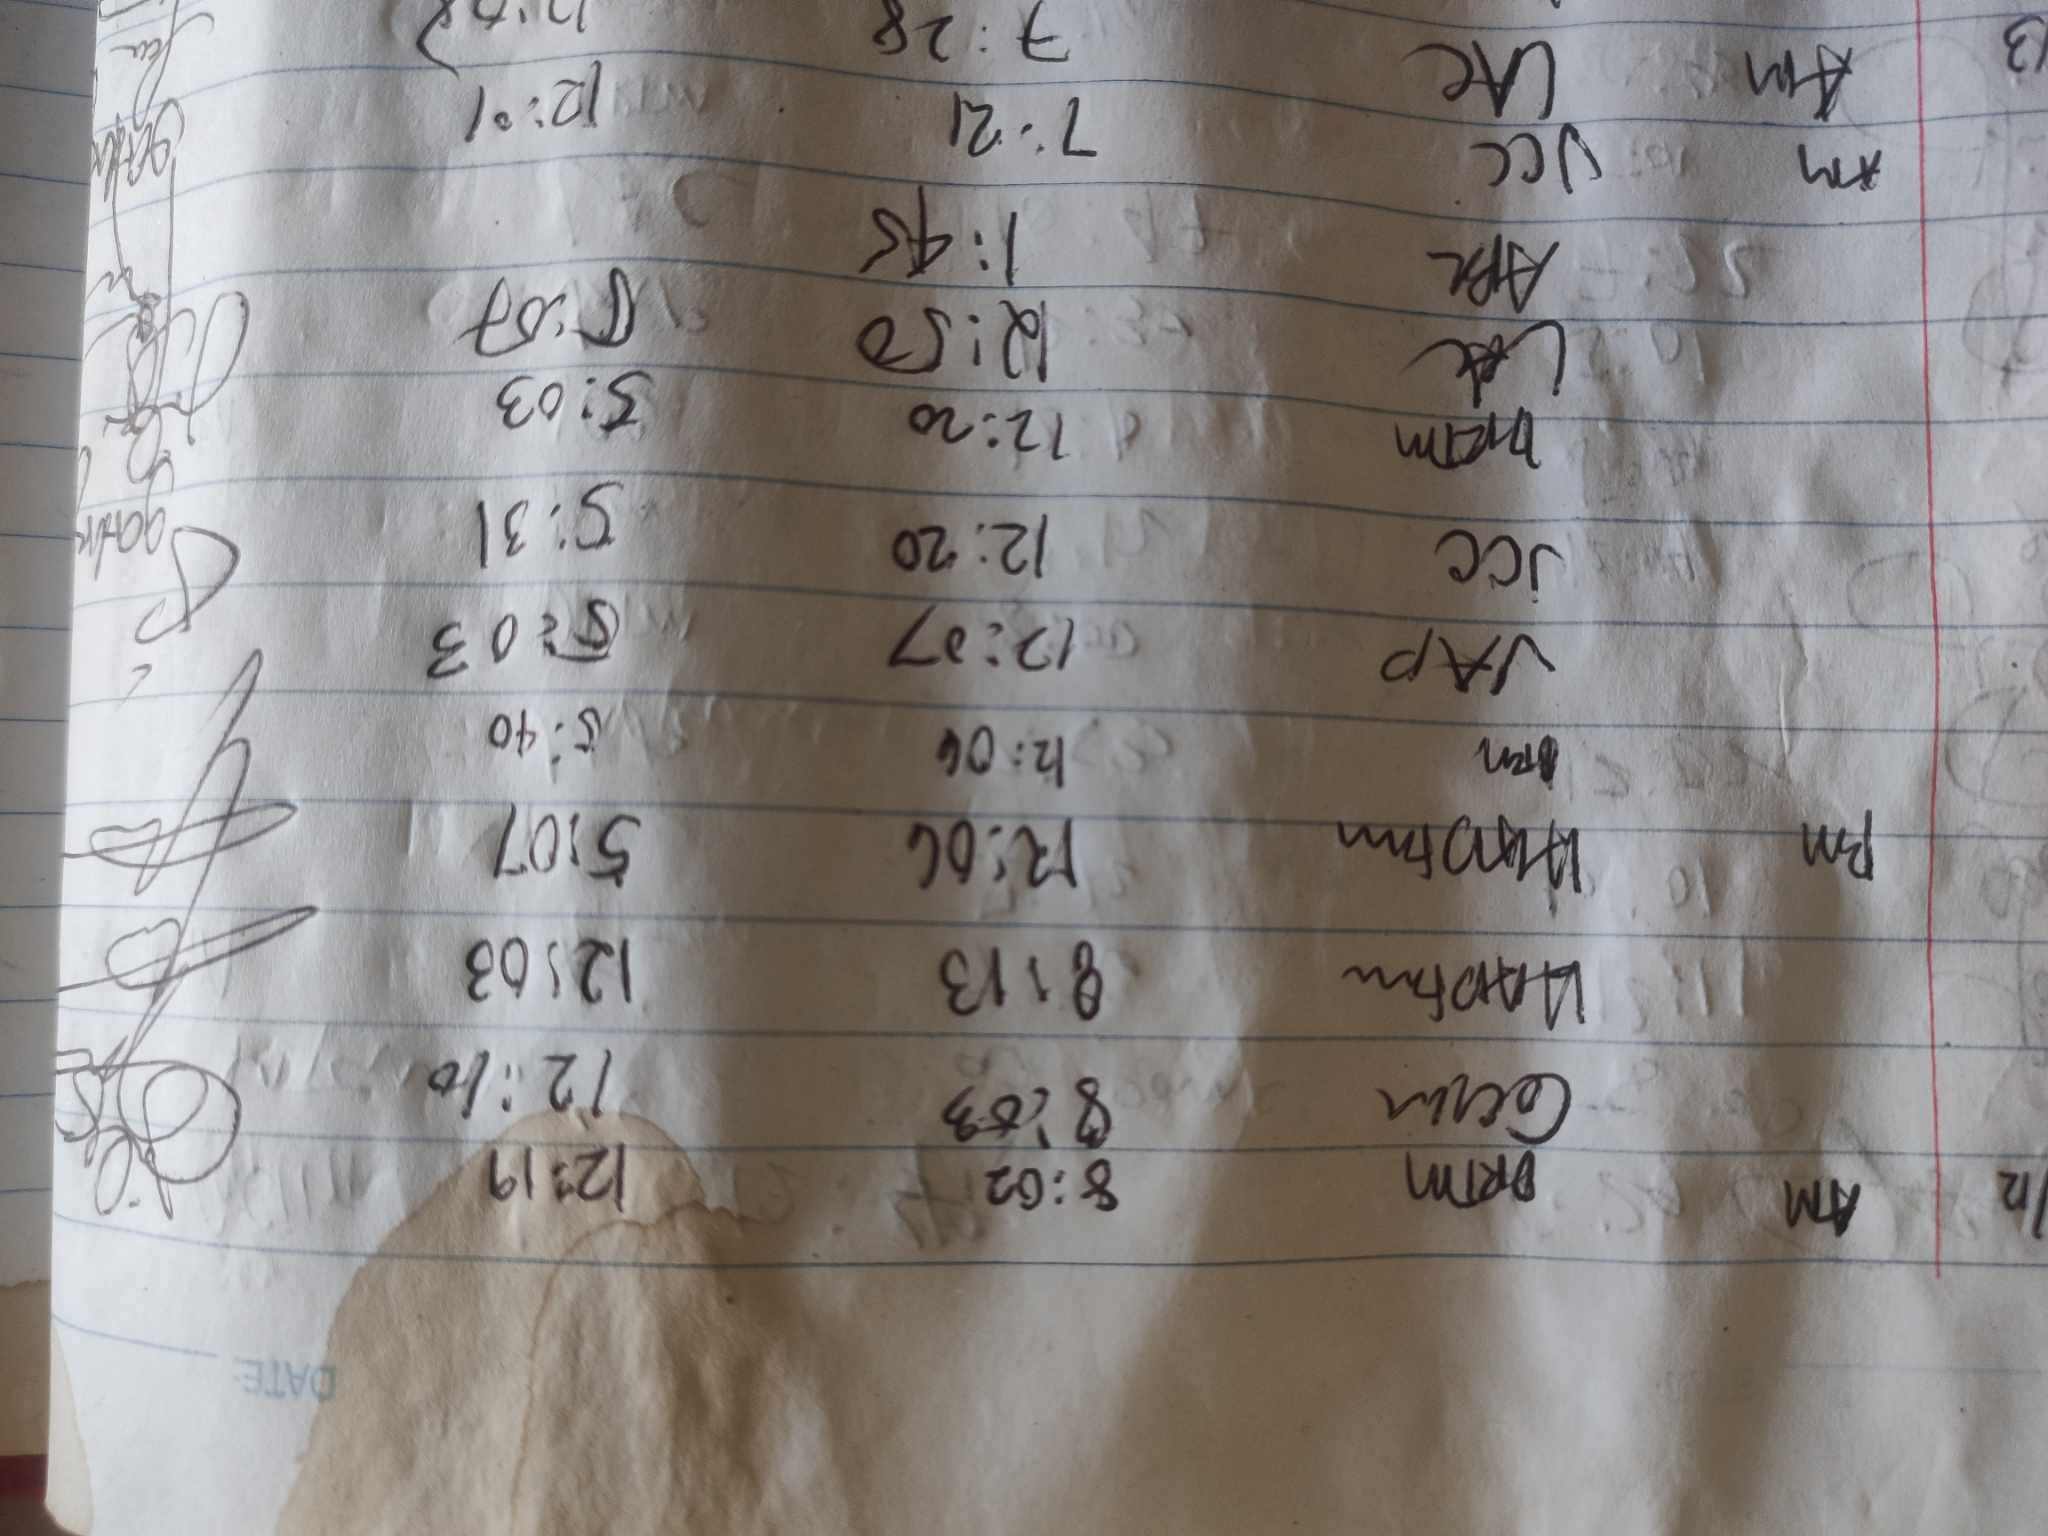 DATE
/12 AM DRTM 8:02 12:19
8:03 12:10
HADFMM 8:13 12:03
PM HADFMM 12:06 5:07
DRM 12:06 5:40
JAP 12:07 5:03
JCC 12:20 5:31
DRTM 12:20 5:03
LAC 12:50 5:07
1:45
AM JCC 7:21 12:01
13 AM LAC 7:28